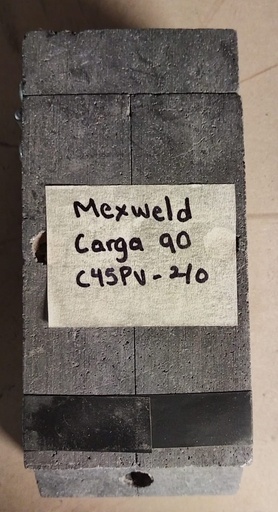 Mexweld
Carga 90
C45PV-210